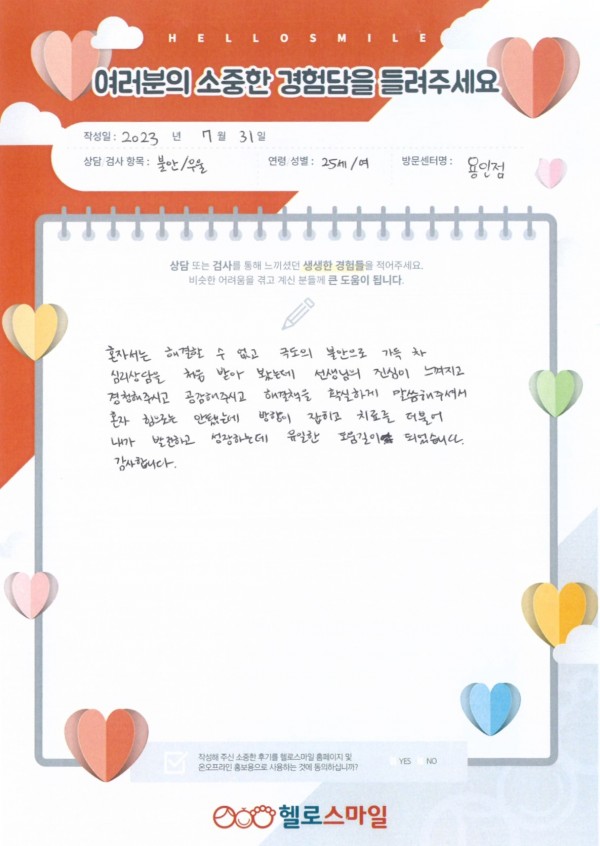 HELLOSMILE
여러분의 소중한 경험담을 들려주세요
작성일 : 2023 년 7 월 31 일
상담/검사 항목 : 불안/우울 연령/성별 : 25세/여 방문센터명 : 용인점
상담 또는 검사를 통해 느끼셨던 생생한 경험들을 적어주세요.
비슷한 어려움을 겪고 계신 분들께 큰 도움이 됩니다.
혼자서는 해결할 수 없고 극도의 불안으로 가득 차
심리상담을 처음 받아 봤는데 선생님의 진심이 느껴지고
경청해주시고 공감해주시고 해결책을 확실하게 말씀해주셔서
혼자 힘으로는 안됐는데 방향이 잡히고 치료를 더불어
내가 발견하고 성장하는데 유일한 도움길이 되었습니다.
감사합니다.
작성해 주신 소중한 후기를 헬로스마일 홈페이지 및
온오프라인 홍보용으로 사용하는 것에 동의하십니까? YES NO
헬로스마일